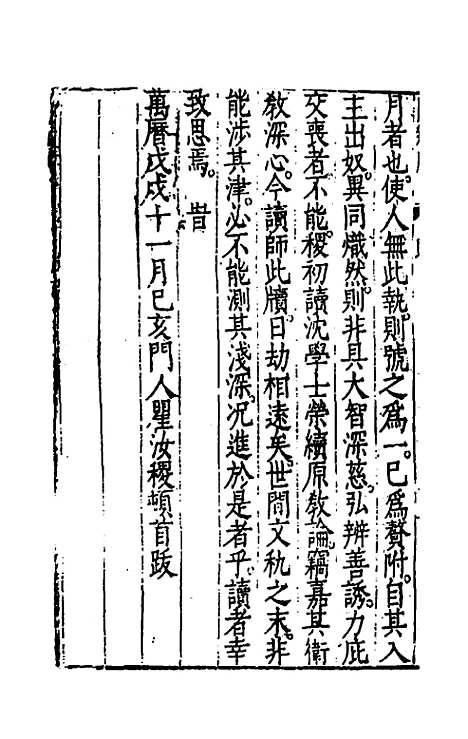 月者也。使人無此執。則號之爲一。已爲贅附。自其入
主出奴。異同熾然。則非具大智深慈。弘辨善誘。力庇
交喪者。不能。稷初讀沈學士榮續原敎論。竊嘉其衛
敎深心。今讀師此牘。日劫相遠矣。世間文𥘿之末。非
能涉其津。必不能測其淺深。况進於是者乎。讀者幸
致思焉。 旹
萬曆戊戌十一月巳亥門人瞿汝稷頓首跋